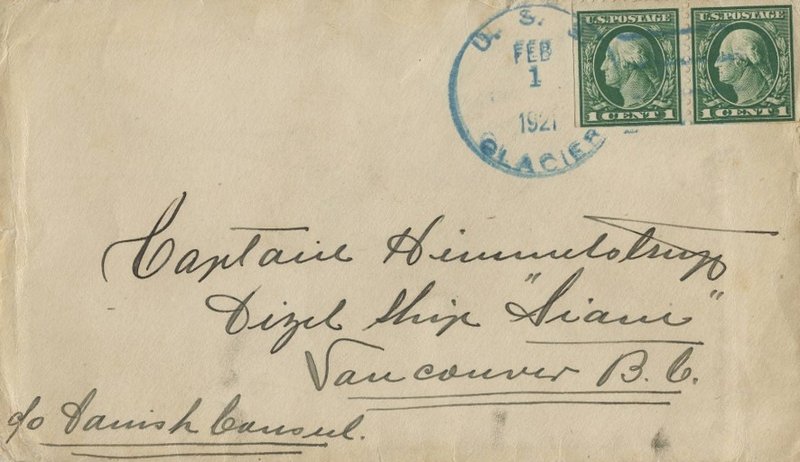 U. S. S.
FEB
1
1921
GLACIER
U.S. POSTAGE
1 CENT 1
U.S. POSTAGE
1 CENT 1
Captain Himmelstrup
Dizel Ship "Siam"
Vancouver B.C.
c/o Danish Consul.